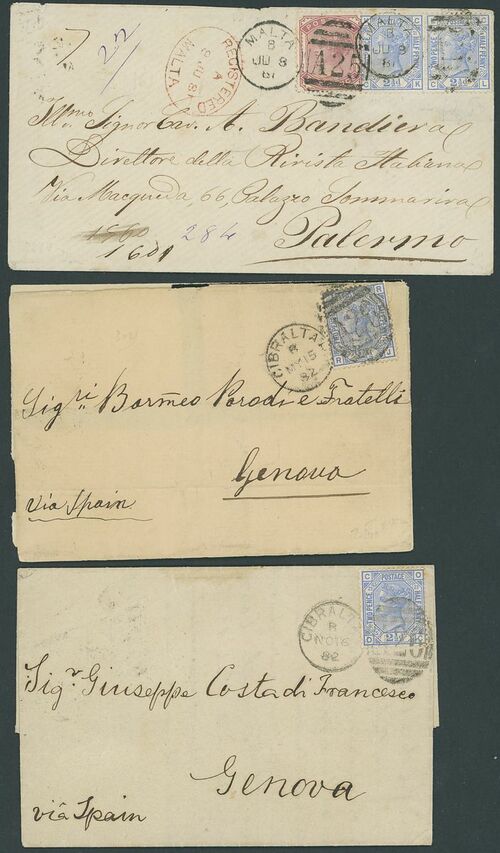 22
REGISTERED
A
8 JU 81
MALTA
MALTA
B
JU 8
81
A25
MALTA
B
JU 8
81
Illmo Signor Cav. A. Bandiera
Direttore della Rivista Italiana
Via Macqueda, 66, Palazzo Sommariva
Palermo
1601
284
GIBRALTAR
B
MY 15
82
Sigri Boromeo Parodi e Fratelli
Genova
via Spain
GIBRALTA
B
NO 16
82
O C POSTAGE O
TWO PENCE HALFPENNY
2½
Sigr Giuseppe Costa di Francesco
Genova
viâ Spain